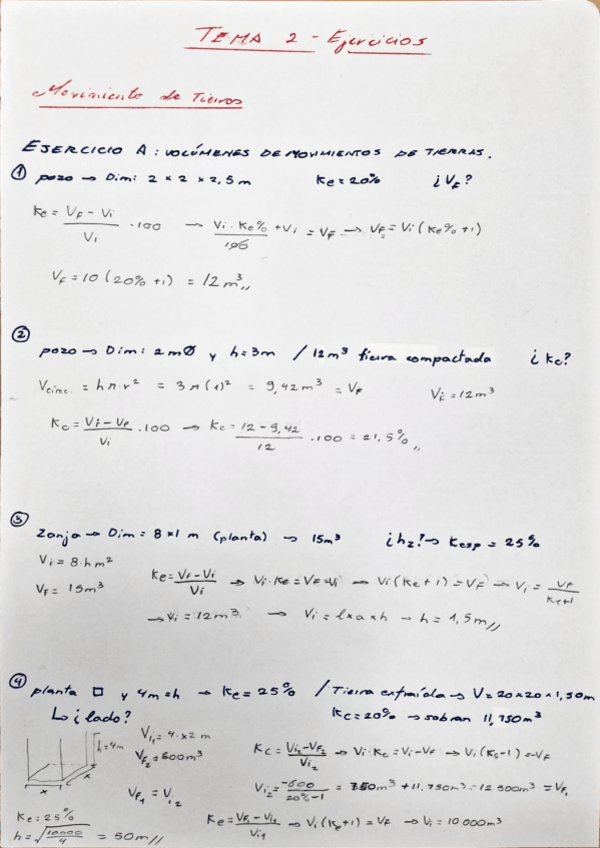 TEMA 2 - Ejercicios
Movimiento de Tierras
EJERCICIO A: VOLÚMENES DE MOVIMIENTOS DE TIERRAS.
① pozo → Dim: 2 x 2 x 2,5 m Ke = 20% ¿VF?
Ke = (VF - Vi) / Vi · 100 → (Vi · Ke%) / 100 + Vi = VF → VF = Vi (Ke% + 1)
VF = 10 (20% + 1) = 12 m³ //
②
pozo → Dim: 2 m Ø y h = 3m / 12 m³ tierra compactada ¿Kc?
Vcirc. = h π · r² = 3 π (1)² = 9,42 m³ = VF Vi = 12 m³
Kc = (Vi - VF) / Vi · 100 → Kc = (12 - 9,42) / 12 · 100 = 21,5% //
③
Zanja → Dim = 8 x 1 m (planta) → 15 m³ ¿hz? → Kesp = 25%
Vi = 8 · h m² Ke = (VF - Vi) / Vi → Vi · Ke = VF - Vi → Vi (Ke + 1) = VF → Vi = VF / (Ke + 1)
VF = 15 m³
→ Vi = 12 m³ → Vi = l x a x h → h = 1,5 m //
④ planta □ y 4m = h → Ke = 25% / Tierra extraída → V = 20 x 20 x 1,50 m
↳ ¿lado? Kc = 20% → sobran 11.750 m³
h = 4m V i1 = 4 · x 2 m
VF2 = 600 m³ Kc = (Vi2 - VF2) / Vi2 → Vi · Kc = Vi - VF → Vi (Kc - 1) = -VF
VF1 = Vi2 Vi2 = -600 / (20% - 1) = 750 m³ + 11.750 m³ = 12 500 m³ = VF1
x x
Ke = 25% Ke = (VF1 - Vi1) / Vi1 → Vi (Ke + 1) = VF → Vi = 10 000 m³
h = √(10000 / 4) = 50 m //